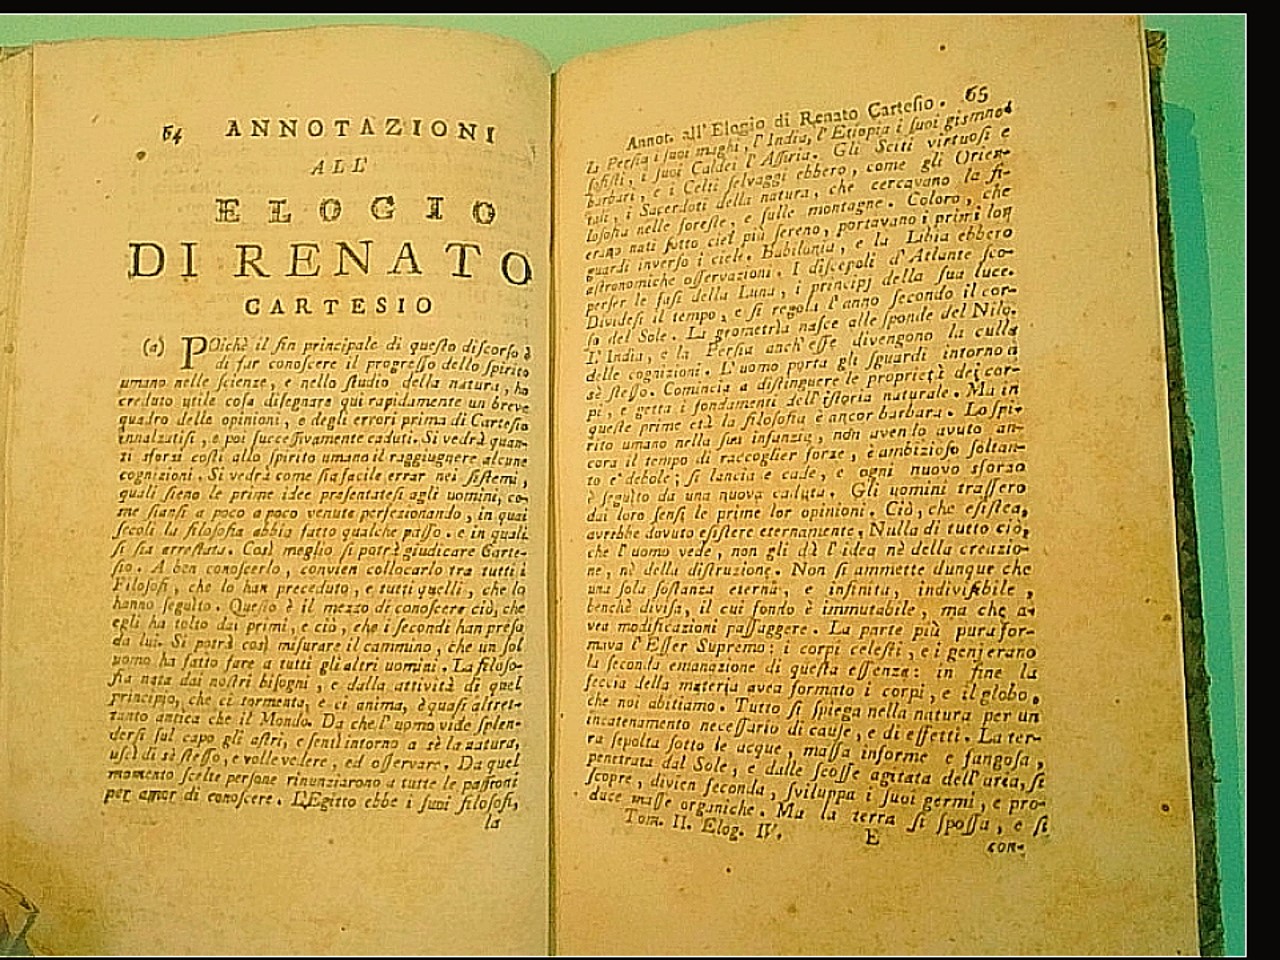 64 ANNOTAZIONI
ALL'
ELOGIO
DI RENATO
CARTESIO
(a) POichè il fin principale di questo discorso è
di far conoscere il progresso dello spirito
umano nelle scienze, e nello studio della natura, ho
creduto utile cosa disegnare qui rapidamente un breve
quadro delle opinioni, e degli errori prima di Cartesio
innalzatisi, e poi successivamente caduti. Si vedrà quan-
ti sforzi costi allo spirito umano il raggiugnere alcune
cognizioni. Si vedrà come sia facile errar nei sistemi,
quali sieno le prime idee presentatesi agli uomini, co-
me siansi a poco a poco venute perfezionando, in quai
secoli la filosofia abbia fatto qualche passo, e in quali
si sia arrestata. Così meglio si potrà giudicare Carte-
sio. A ben conoscerlo, convien collocarlo tra tutti i
Filosofi, che lo han preceduto, e tutti quelli, che lo
hanno seguito. Questo è il mezzo di conoscere ciò, che
egli ha tolto dai primi, e ciò, che i secondi han preso
da lui. Si potrà così misurare il cammino, che un sol
uomo ha fatto fare a tutti gli altri uomini. La filoso-
fia nata dai nostri bisogni, e dalla attività di quel
principio, che ci tormenta, e ci anima, è quasi altret-
tanto antica che il Mondo. Da che l'uomo vide splen-
dersi sul capo gli astri, e sentì intorno a sè la natura,
uscì di sè stesso, e volle vedere, ed osservare. Da quel
momento scelte persone rinunziarono a tutte le passioni
per amor di conoscere. L'Egitto ebbe i suoi filosofi,
la
Annot. all'Elogio di Renato Cartesio. 65
la Persia i suoi maghi, l'India, l'Etiopia i suoi gismno-
sofisti, i suoi Caldei l'Assiria. Gli Sciti virtuosi e
barbari, e i Celti selvaggi ebbero, come gli Orien-
tali, i Sacerdoti della natura, che cercavano la fi-
losofia nelle foreste, e sulle montagne. Coloro, che
erano nati sotto ciel più sereno, portavano i primi lor
guardi inverso i cieli. Babilonia, e la Libia ebbero
astronomiche osservazioni. I discepoli d'Atlante sco-
perser le fasi della Luna, i principj della sua luce.
Dividesi il tempo, e si regola l'anno secondo il cor-
so del Sole. La geometria nasce alle sponde del Nilo.
L'India, e la Persia anch'esse divengono la culla
delle cognizioni. L'uomo porta gli sguardi intorno a
sè stesso. Comincia a distinguere le proprietà dei cor-
pi, e getta i fondamenti dell'istoria naturale. Ma in
queste prime età la filosofia è ancor barbara. Lo spi-
rito umano nella sua infanzia, non avendo avuto an-
cora il tempo di raccoglier forze, è ambizioso soltan-
to e debole; si lancia e cade, e ogni nuovo sforzo
è seguito da una nuova caduta. Gli uomini trassero
dai loro sensi le prime lor opinioni. Ciò, che esistea,
avrebbe dovuto esistere eternamente. Nulla di tutto ciò,
che l'uomo vede, non gli dà l'idea nè della creazio-
ne, nè della distruzione. Non si ammette dunque che
una sola sostanza eterna, e infinita, indivisibile,
benchè divisa, il cui fondo è immutabile, ma che a-
vea modificazioni passaggere. La parte più pura for-
mava l'Esser Supremo: i corpi celesti, e i genj erano
la seconda emanazione di questa essenza: in fine la
feccia della materia avea formato i corpi, e il globo,
che noi abitiamo. Tutto si spiega nella natura per un
incatenamento necessario di cause, e di effetti. La ter-
ra sepolta sotto le acque, massa informe e fangosa,
penetrata dal Sole, e dalle scosse agitata dell'aria, si
scopre, divien feconda, sviluppa i suoi germi, e pro-
duce masse organiche. Ma la terra si spossa, e si
Tom. II. Elog. IV. E
con-